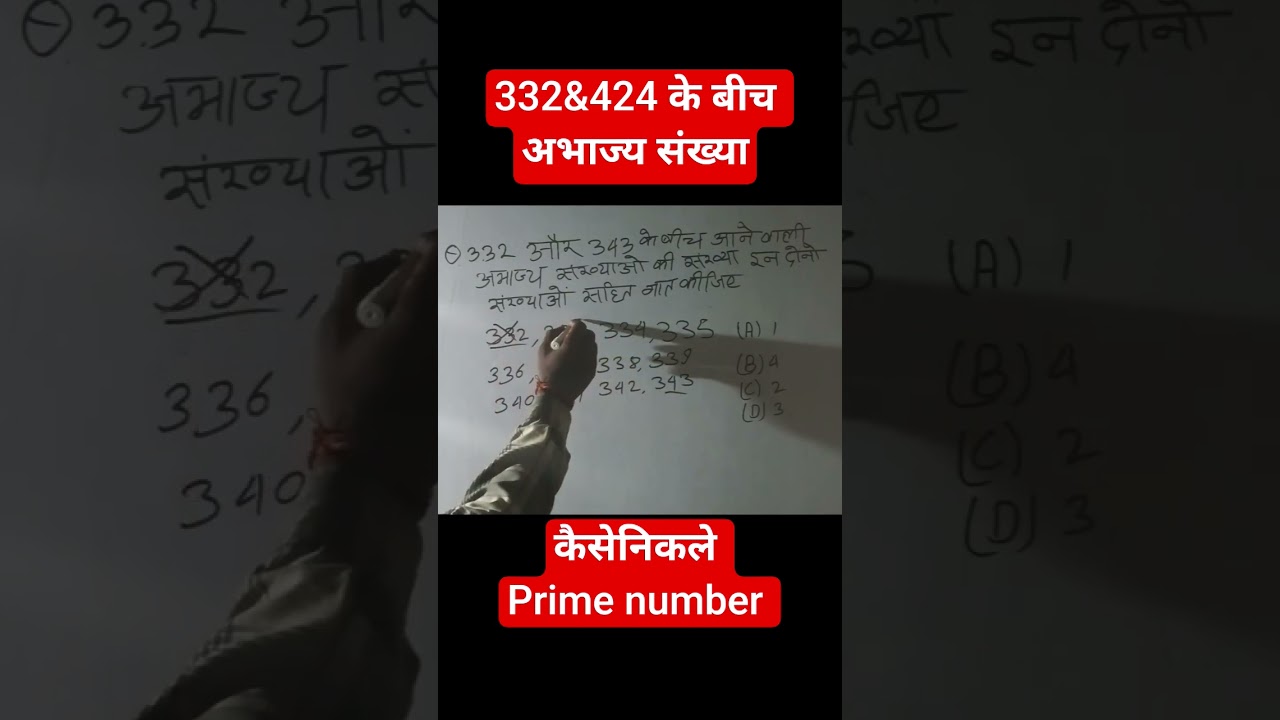 332&424 के बीच
अभाज्य संख्या
332 और 343 के बीच आने वाली
अभाज्य संख्याओ की संख्या इन दोनो
संख्याओं सहित ज्ञात कीजिए
332, 334, 335 (A) 1
336, 338, 339 (B) 4
340 342, 343 (C) 2
(D) 3
कैसेनिकले
Prime number